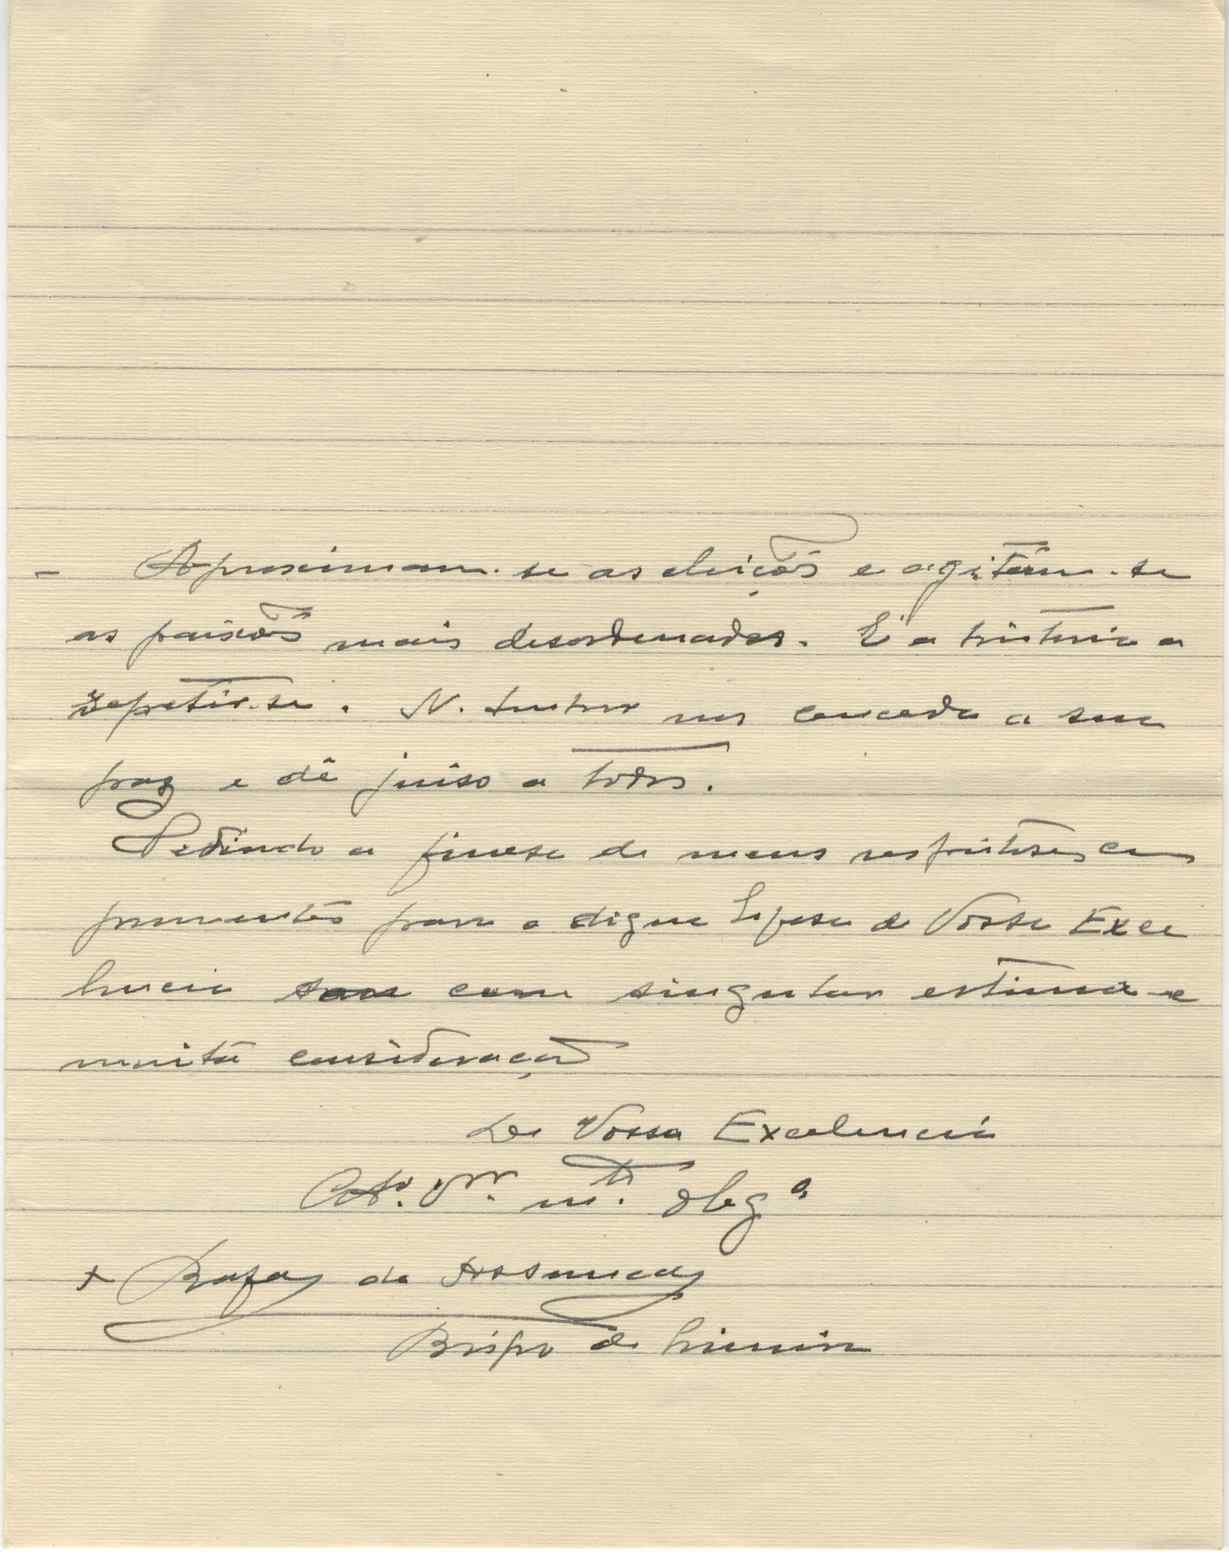 - Aproximam-se as eleições e agitam-se
as paixões mais desordenadas. É a historia a
repetir-se. N. Senhor nos conceda a sua
paz e dê juiso a todos.
Pedindo a finesa de meus respeitosos cum
primentos para a digna Esposa de Vossa Exce
lencia sou com singular estima e
muita consideração
De Vossa Excelencia
Atº. Vr. mtº. obgº
+ Rafael da Assunção
Bispo de Limira